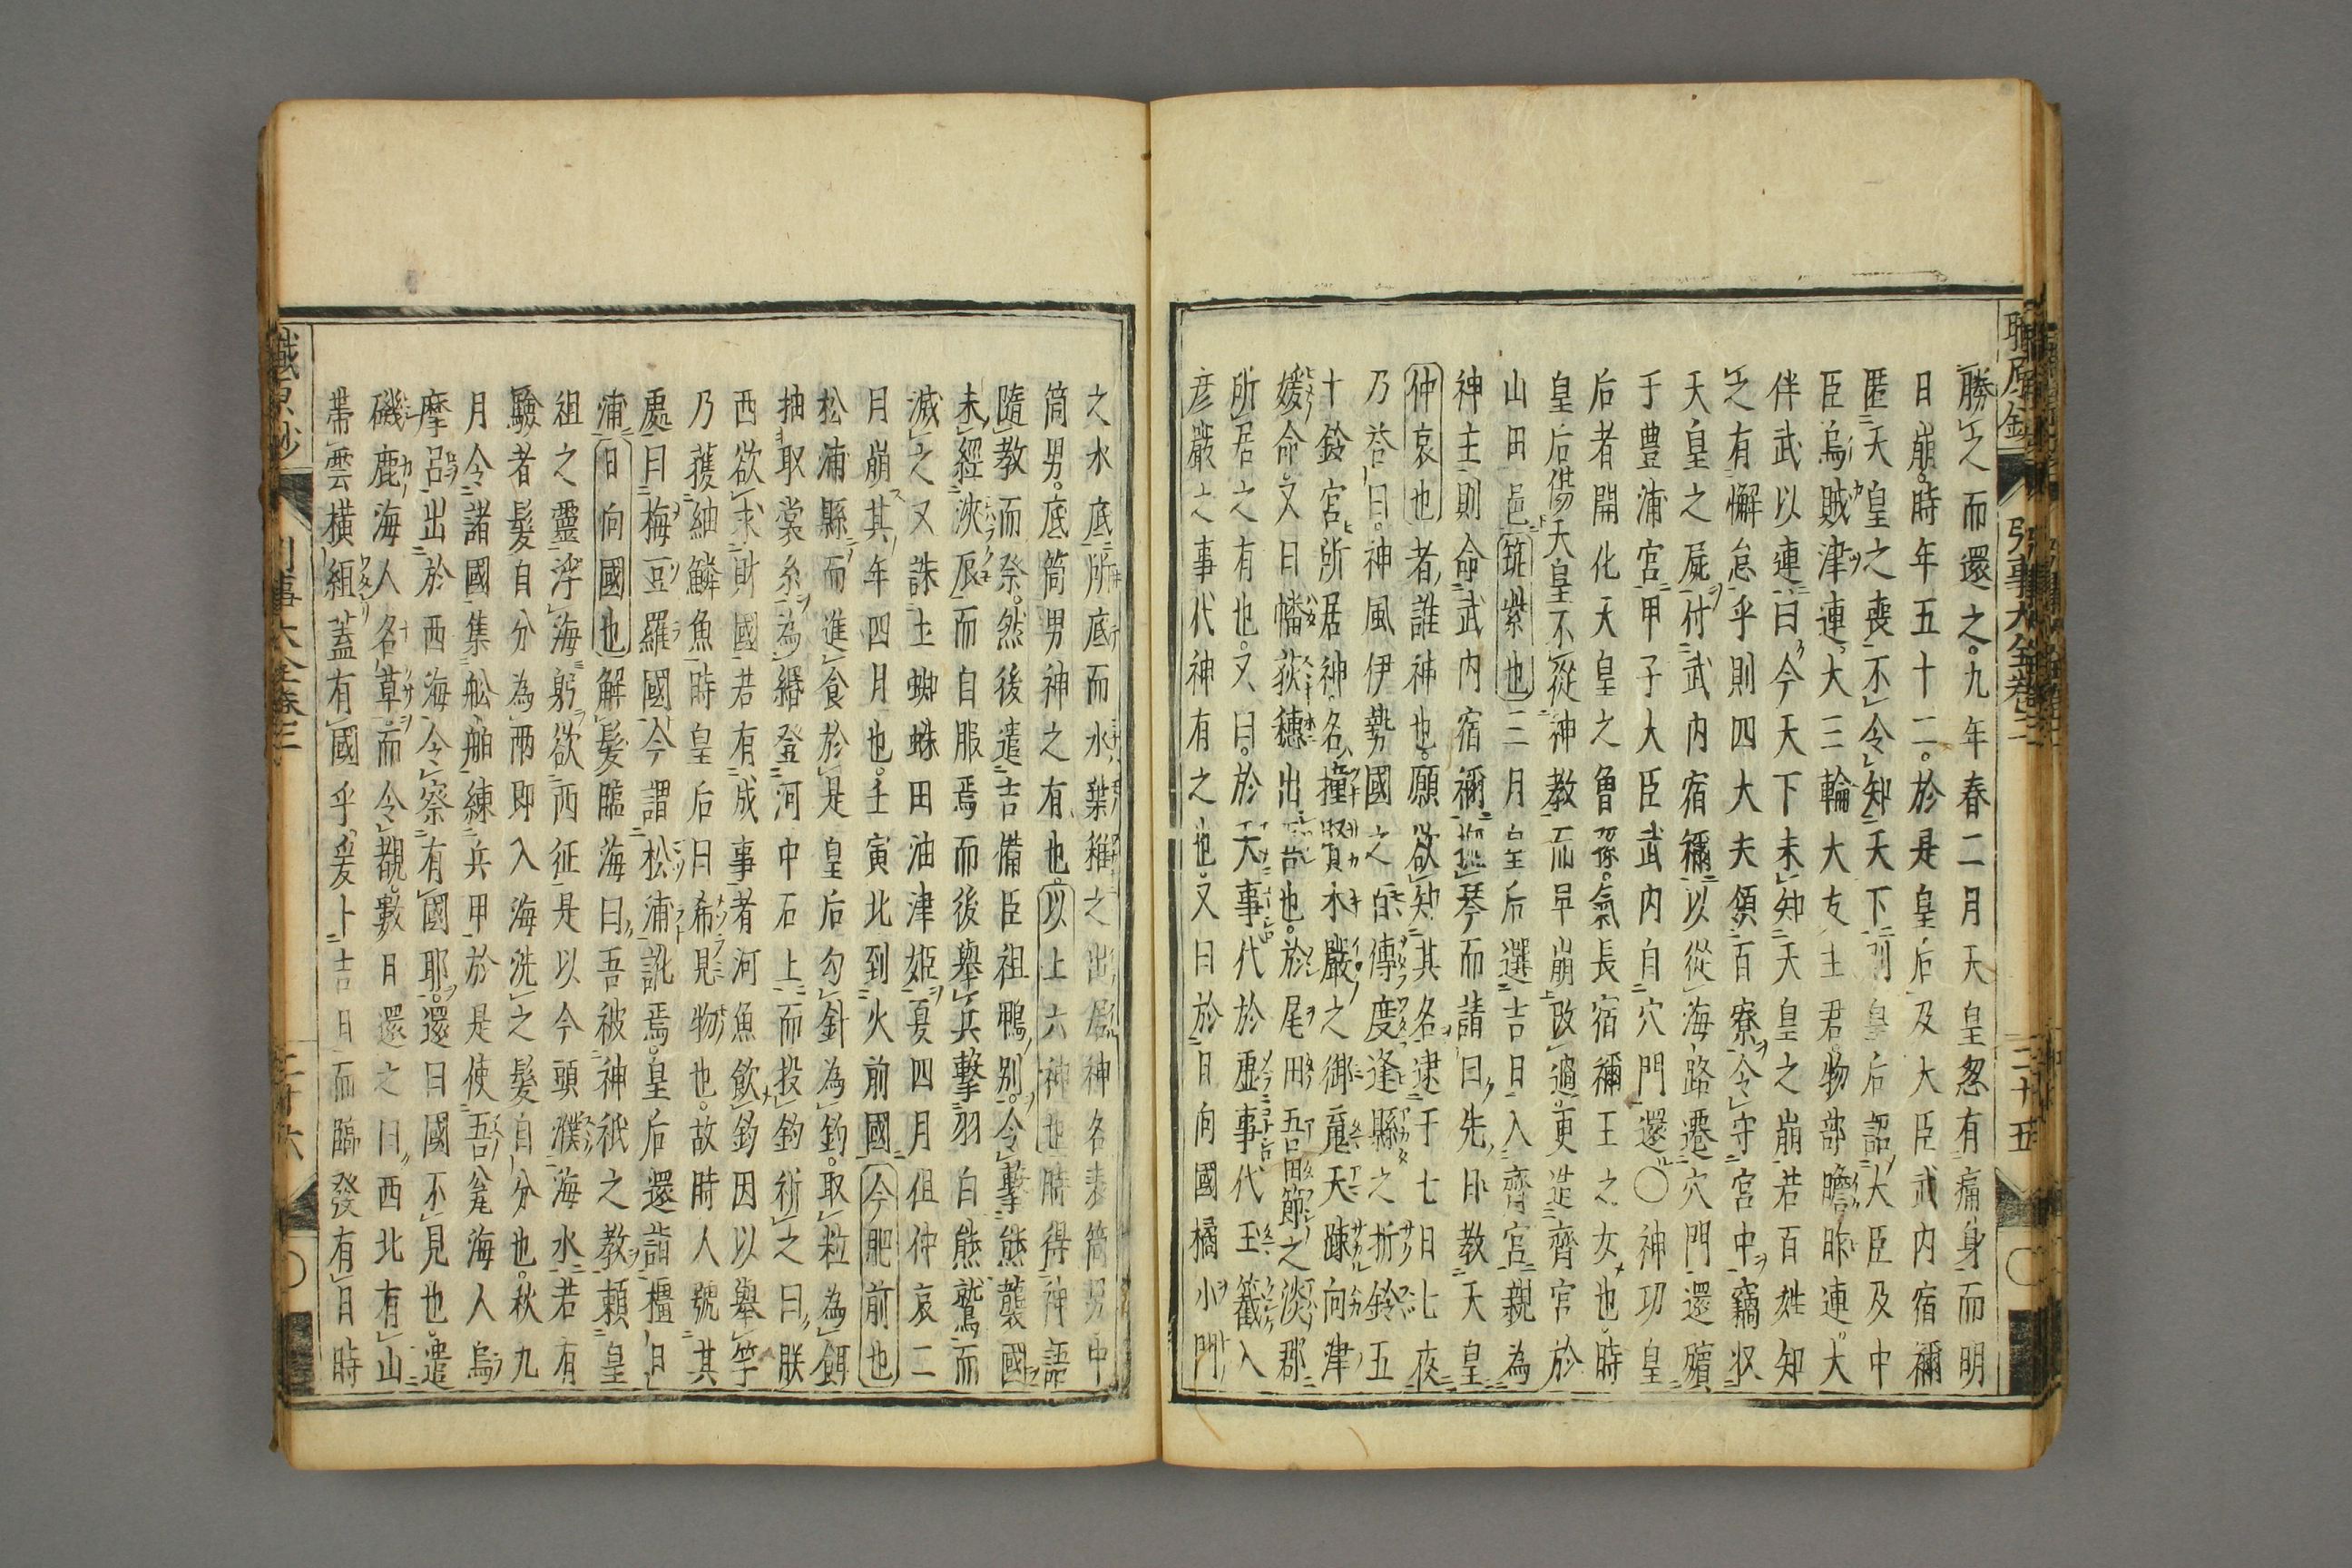 勝之而還之九年春二月天皇忽有痛身而明
日崩時年五十二於是皇后及大臣武內宿禰
匿天皇之喪不令知天下則皇后詔大臣及中
臣烏賊津連大三輪大友主君物部膽咋連大
伴武以連曰今天下未知天皇之崩若百姓知
之有懈怠乎則四大夫領百寮令守宮中竊収
天皇之屍付武內宿禰以從海路遷穴門還殯
于豊浦宮甲子大臣武內自穴門還〇神功皇
后者開化天皇之曾孫氣長宿禰王之女也時
皇后傷天皇不從神教而早崩改過更造齊宮於
山田邑筑紫也三月皇后選吉日入齊宮親為
神主則命武内宿禰撫琴而請曰先日教天皇
仲哀也者誰神也願欲知其名逮于七日七夜
乃荅曰神風伊勢國之百傳度逢縣之折鈴五
十鈴宮所居神名撞賢木嚴之御魂天疎向津
媛命又曰幡荻穗出吾也於尾田吾田節之淡郡
所居之有也又曰於天事代於虛事代玉籖入
彥嚴之事代神有之也又曰於日向國橘小門
之水底所居而水葉稚之出居神名表筒男中
筒男底筒男神之有也以上六神也時得神語
隨教而祭然後遣吉備臣祖鴨別令擊熊襲國
未經浹辰而自服焉而後擧兵擊羽白熊鷲而
滅之又誅土蜘蛛田油津姬夏四月但仲哀二
月崩其年四月也壬寅北到火前國今肥前也
松浦縣而進食於是皇后勾針為鈎取粒為餌
抽取裳糸為緡登河中石上而投鈎祈之曰朕
西欲求財國若有成事者河魚飲鈎因以擧竿
乃獲細鱗魚時皇后曰希見物也故時人號其
處曰梅豆羅國今謂松浦訛焉皇后還詣橿日
浦日向國也解髮臨海曰吾被神祇之教頼皇
祖之靈浮海躬欲西征是以今頭濮海水若有
驗者髮自分為兩即入海洗之髮自分也秋九
月令諸國集舩舶練兵甲於是使吾瓮海人烏
摩呂出於西海令察有國耶還曰國不見也遣
磯鹿海人名草而令覩數日還之曰西北有山
帶雲橫緪蓋有國乎爰卜吉日而臨發有日時
職原鈔 引事大全卷三 三十五
職原鈔 引事大全卷三 三十六